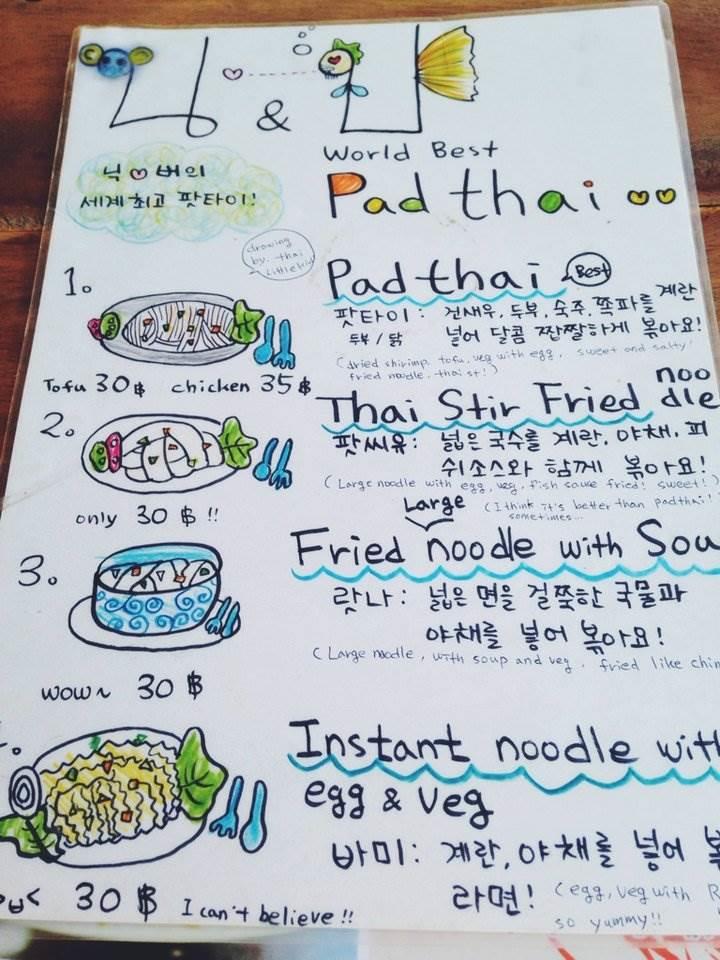 &
World Best
닉♡버의
세계최고 팟타이!
Pad thai
drawing
by. thai
Little kid
1.
Pad thai
Best
팟타이: 건새우, 두부, 숙주, 쪽파를 계란
두부/닭 넣어 달콤 짭짤하게 볶아요!
(dried shirimp, tofu, veg with egg, sweet and salty!
fried noodle. thai st!)
Tofu 30฿ chicken 35฿
2.
Thai Stir Fried noo
dle
팟씨유: 넓은 국수를 계란, 야채, 피
쉬소스와 함께 볶아요!
(Large noodle with egg, veg, fish sauce fried! sweet!)
(I think it's better than padthai!
sometimes...
only 30 ฿ !!
3.
Large
Fried noodle with Sou
랏나: 넓은 면을 걸쭉한 국물과
야채를 넣어 볶아요!
(Large noodle, with soup and veg. fried like chin
wow~ 30 ฿
Instant noodle with
egg & veg
바미: 계란, 야채를 넣어 볶
라면! (egg, veg with R
so yummy!!
30 ฿ I can't believe !!